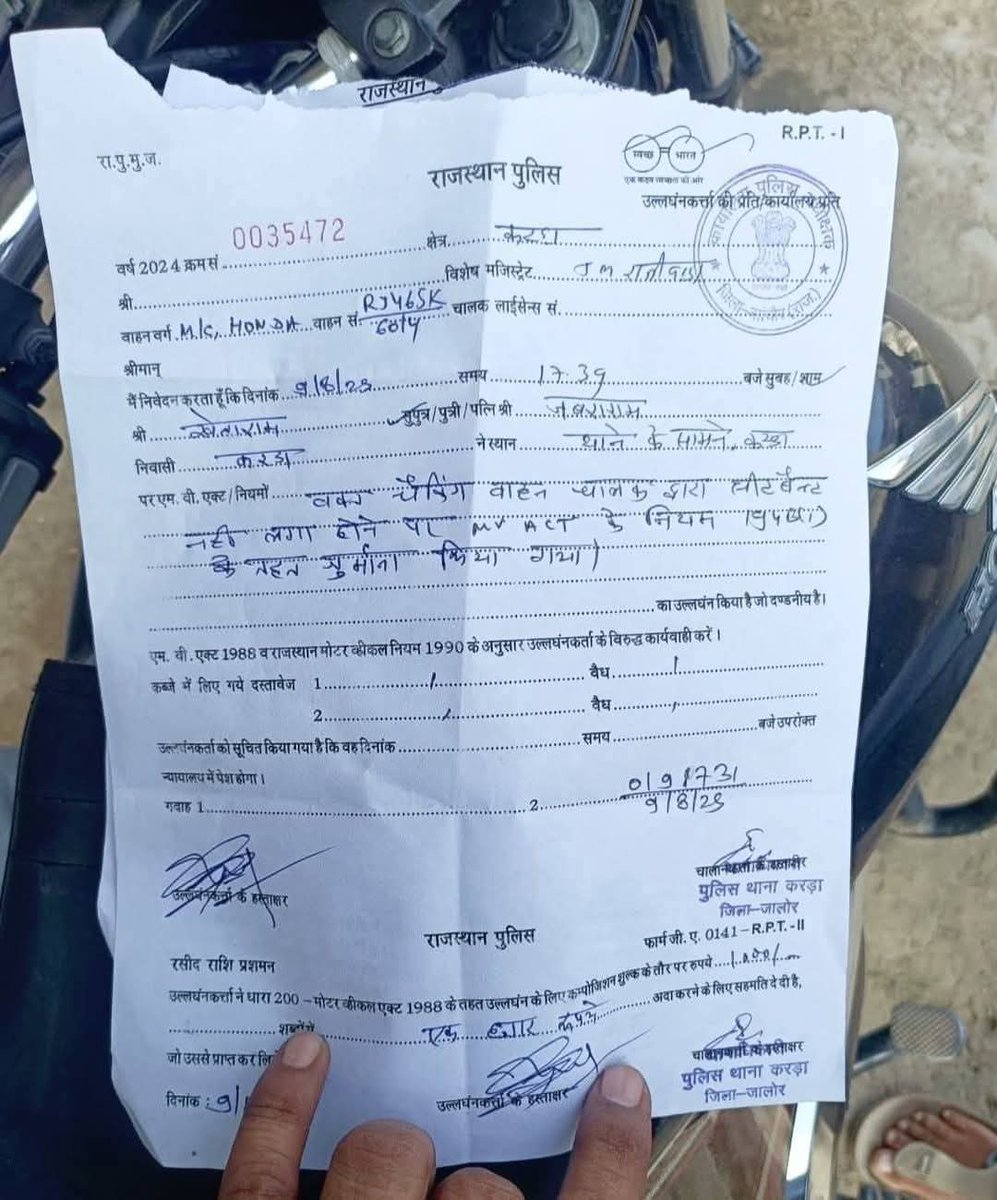 राजस्थान
R.P.T. - I
रा.पु.मु.ज.
स्वच्छ भारत
एक कदम स्वच्छता की ओर
राजस्थान पुलिस
उल्लघंनकर्त्ता की प्रति/कार्यालय प्रति
वर्ष 2024 क्रम सं. 0035472 क्षेत्र करडा
श्री विशेष मजिस्ट्रेट J M रानीवाडा
वाहन वर्ग M/C, HONDA वाहन सं. RJ46SK 6014 चालक लाईसेन्स सं.
कार्यालय पुलिस अधीक्षक
जिला-जालोर (राज.)
श्रीमान्
मैं निवेदन करता हूँ कि दिनांक 9/8/23 समय 17.39 बजे सुबह/शाम
श्री सुपुत्र/पुत्री/पत्नि श्री जबराराम
निवासी करडा ने स्थान थाने के सामने करडा
पर एम. वी. एक्ट/नियमों वक्त चैकिंग वाहन चालक द्वारा सीट बैल्ट
नही लगा होने पर MV ACT के नियम 194B(1)
के तहत जुर्माना किया गया।
का उल्लघंन किया है जो दण्डनीय है।
एम. वी. एक्ट 1988 व राजस्थान मोटर व्हीकल नियम 1990 के अनुसार उल्लघंनकर्ता के विरुद्ध कार्यवाही करें।
कब्जे में लिए गये दस्तावेज 1 वैध
2 वैध
उल्लघंनकर्ता को सूचित किया गया है कि वह दिनांक समय बजे उपरोक्त
न्यायालय में पेश होगा।
गवाह 1 2. 0191731
9/8/23
उल्लघंनकर्त्ता के हस्ताक्षर
चालानकर्ता के हस्ताक्षर
पुलिस थाना करड़ा
जिला-जालोर
राजस्थान पुलिस
फार्म जी. ए. 0141-R.P.T.-II
रसीद राशि प्रशमन
उल्लघंनकर्त्ता ने धारा 200 - मोटर व्हीकल एक्ट 1988 के तहत उल्लघंन के लिए कम्पोजिशन शुल्क के तौर पर रुपये 1000/-
शब्दों में एक हजार रूपये अदा करने के लिए सहमति दे दी है,
जो उससे प्राप्त कर
चालानकर्ता के हस्ताक्षर
पुलिस थाना करड़ा
जिला-जालोर
दिनांक : 9/ उल्लघंनकर्त्ता के हस्ताक्षर